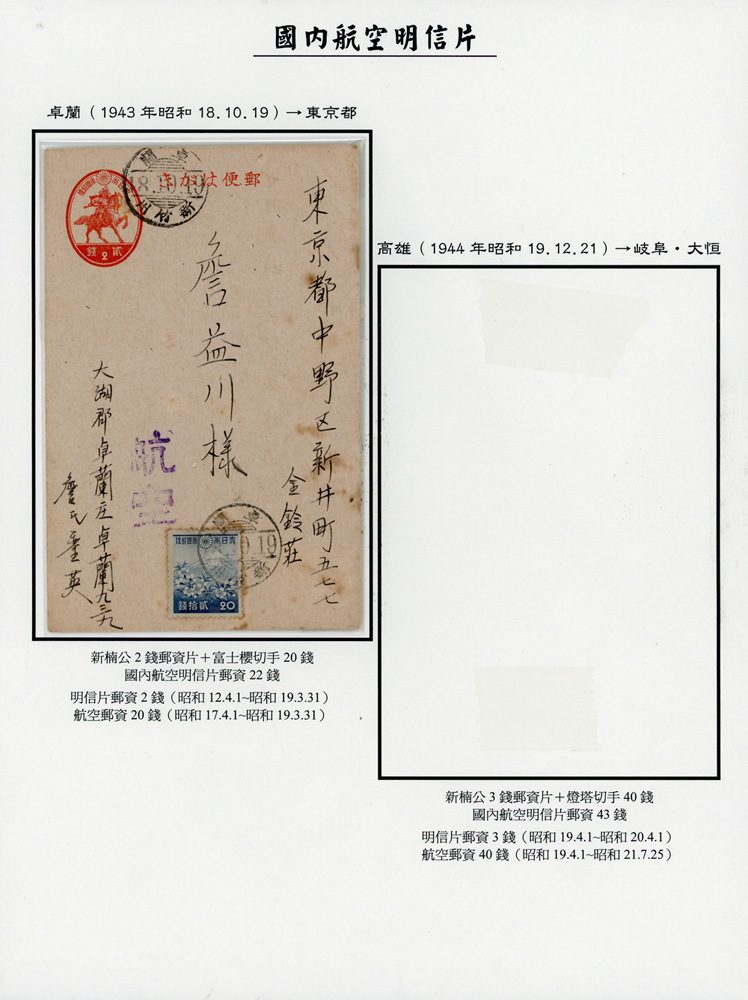 國內航空明信片
卓蘭（1943 年昭和 18.10.19）→東京都
郵便はかき
貳錢
2
卓蘭
18.10.19
新竹州
東京都中野区新井町五七七
金鈴莊
詹益川様
大湖郡卓蘭庄卓蘭九三九
詹氏董英
航空
大日本帝國郵便
貳拾錢
20
新楠公 2 錢郵資片＋富士櫻切手 20 錢
國內航空明信片郵資 22 錢
明信片郵資 2 錢（昭和 12.4.1~昭和 19.3.31）
航空郵資 20 錢（昭和 17.4.1~昭和 19.3.31）
高雄（1944 年昭和 19.12.21）→岐阜・大恒
新楠公 3 錢郵資片＋燈塔切手 40 錢
國內航空明信片郵資 43 錢
明信片郵資 3 錢（昭和 19.4.1~昭和 20.4.1）
航空郵資 40 錢（昭和 19.4.1~昭和 21.7.25）